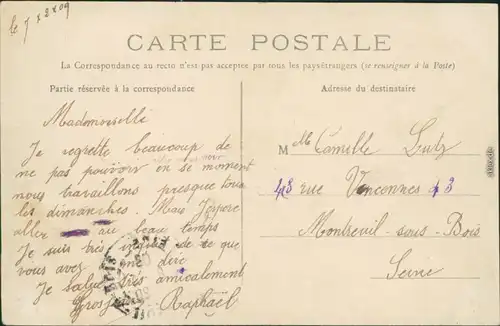 le 7 x 2 x 09
CARTE POSTALE
La Correspondance au recto n'est pas acceptée par tous les pays étrangers (se renseigner à la Poste)
Partie réservée à la correspondance
Adresse du destinataire
Mademoiselle
Je regrette beaucoup de
ne pas pouvoir en se moment
nous travaillons presque tous
les dimanches. Mais J'espère
aller au beau temps
Je suis très de ce que
vous avez me dire
Je salue très amicalement
Raphaël
Mlle Camille Lutz
43 rue Vincennes 43
Montreuil-sous-Bois
Seine